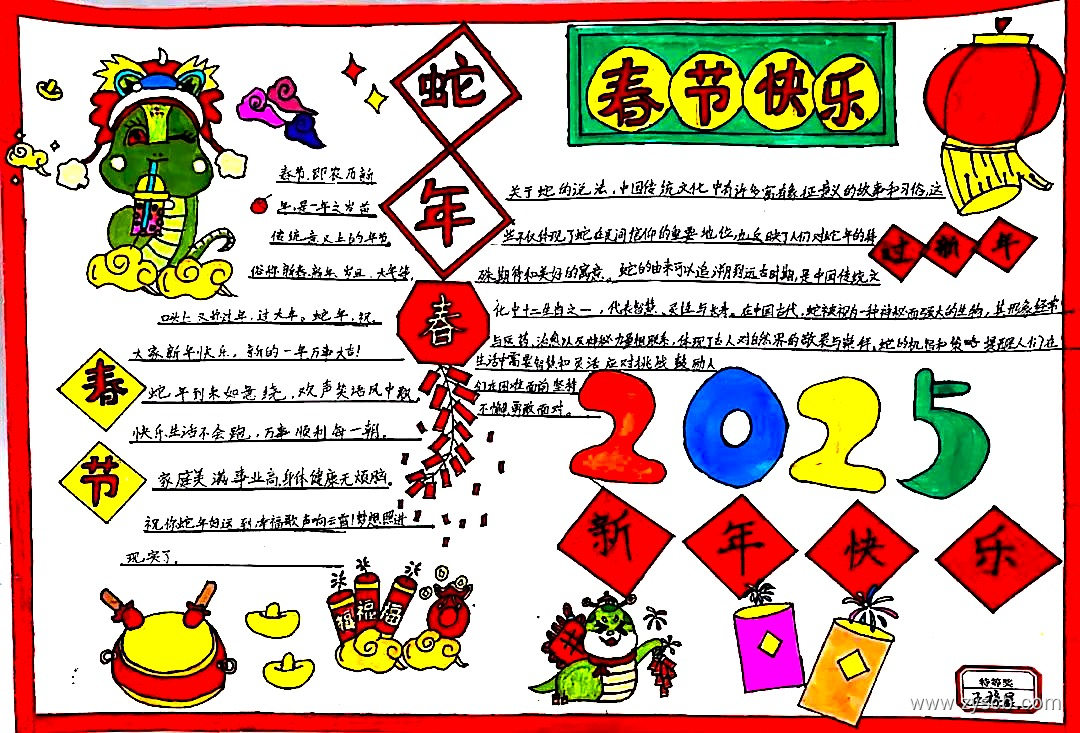 蛇年
春节快乐
春节,即农历新
年,是一年之岁首
传统意义上的年节
俗称新春、新年、岁旦、大年等,
口头上又称过年、过大年。蛇年,祝
大家新年快乐,新的一年万事大吉!
蛇年到来如意绕,欢声笑语风中飘
快乐生活不会跑,万事顺利每一朝。
家庭美满事业高,身体健康无烦恼。
祝你蛇年好运到,幸福歌声响云霄!梦想照进
现实了。
春节
春
关于蛇的说法,中国传统文化中有许多富有象征意义的故事和习俗,这
些不仅体现了蛇在民间信仰的重要地位,也反映了人们对蛇年的特
殊期待和美好的寓意。蛇的由来可以追溯到远古时期,是中国传统文
化中十二生肖之一,代表智慧、灵性与长寿。在中国古代,蛇被视为一种神秘而强大的生物,其形象经常
与医药、治愈以及神秘力量相联系,体现了古人对自然界的敬畏与崇拜。蛇的机智和策略提醒人们在
生活中需要智慧和灵活应对挑战鼓励人
们在困难面前坚持
不懈,勇敢面对。
过新年
2025
新年快乐
福福福
特等奖